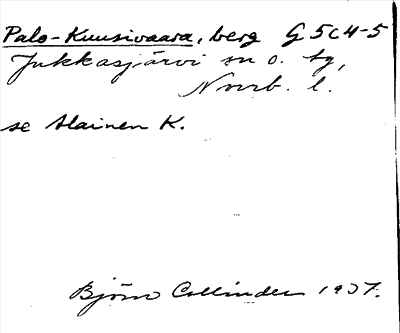 Palo-Kuusivaara, berg G 5 C 4-5
Jukkasjärvi sn o. tg,
Norrb. l.
se Alainen K.
Björn Collinder 1937.